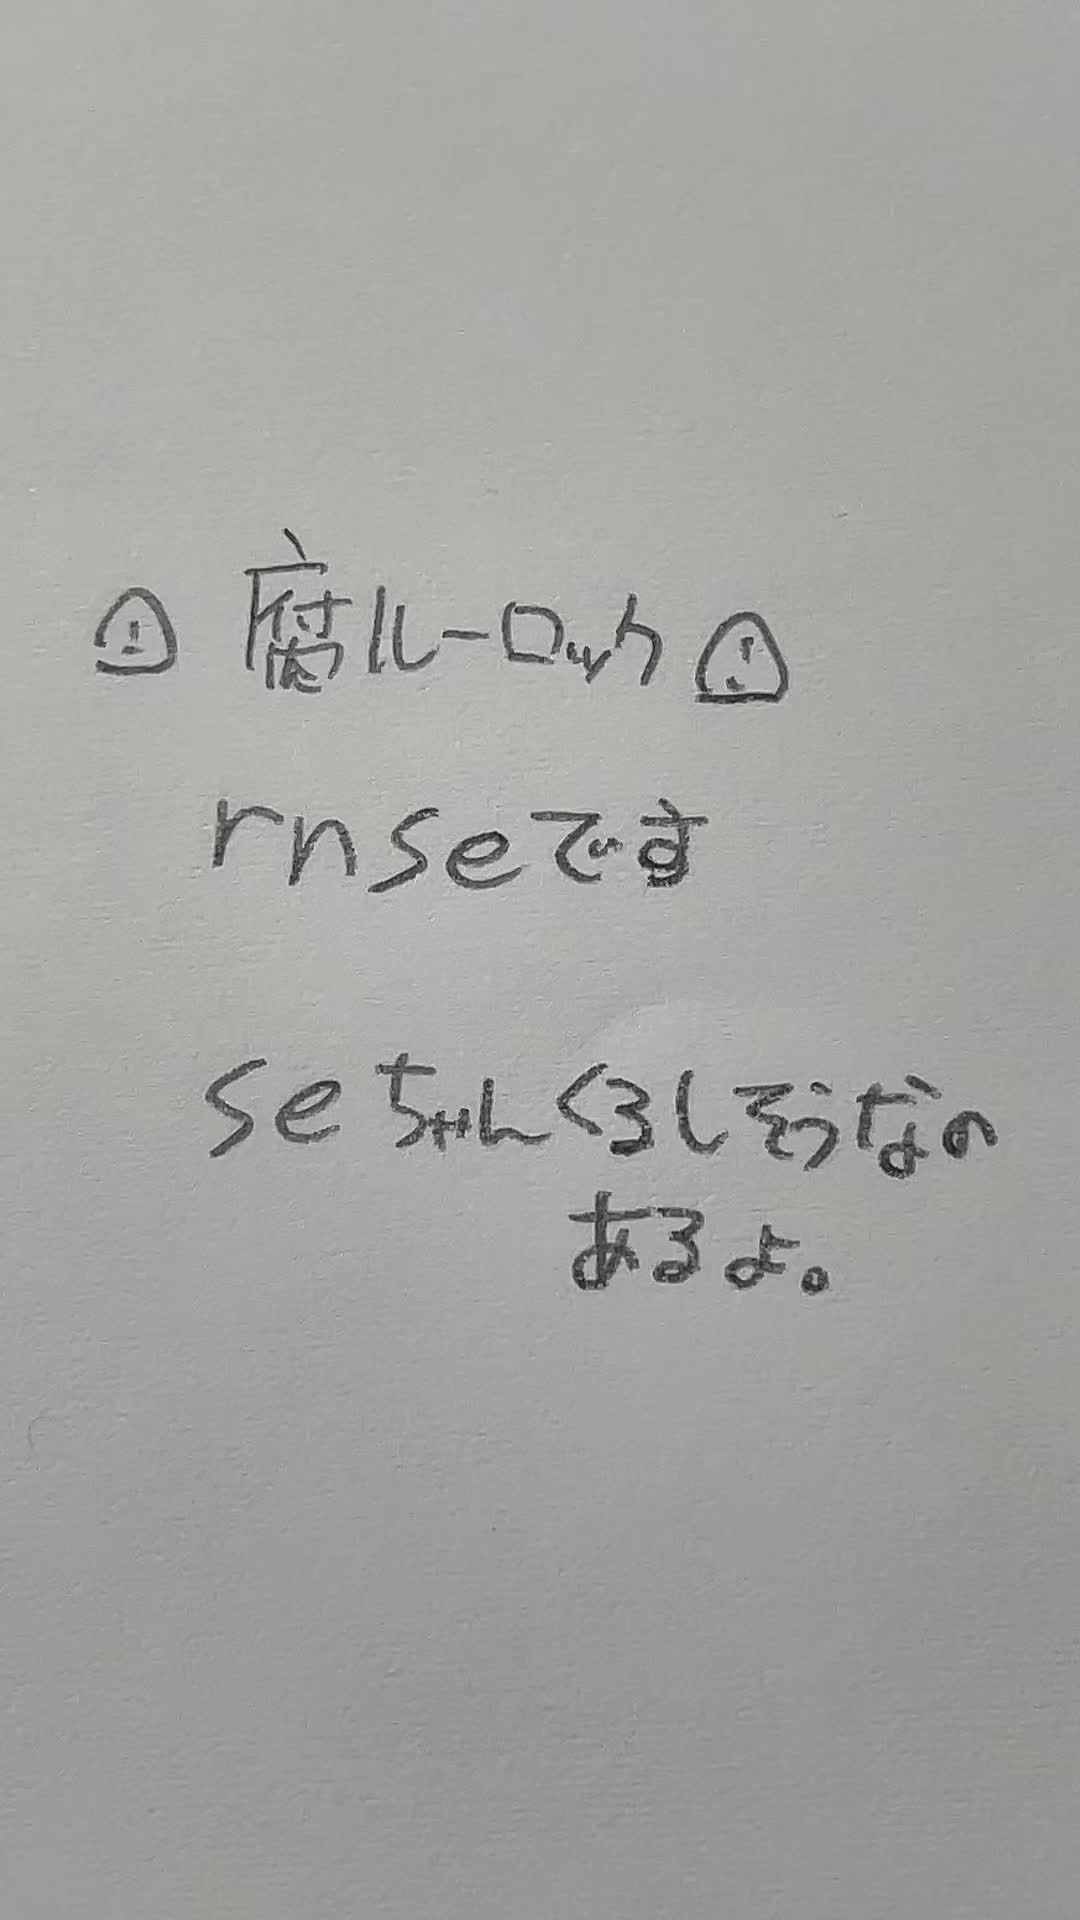 腐ルーロック
rnseです
seちゃんくるしそうなの
あるよ。